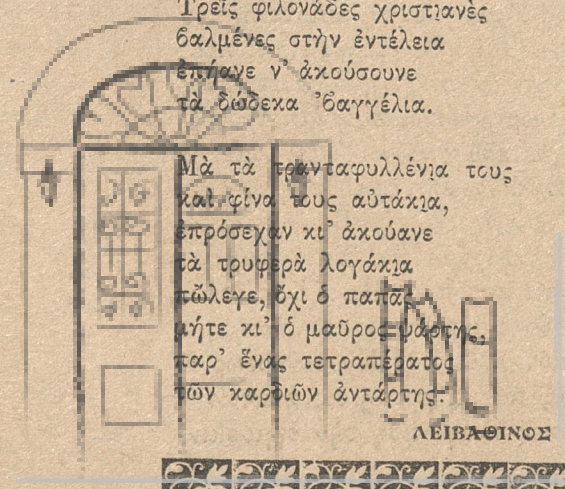 Τρεῖς φιλονάδες χριστιανὲς
βαλμένες στὴν ἐντέλεια
ἐπήγανε ν' ἀκούσουνε
τὰ δώδεκα 'βαγγέλια.
Μὰ τὰ τρανταφυλλένια τους
καὶ φίνα τους αὐτάκια,
ἐπρόσεχαν κι' ἀκούανε
τὰ τρυφερὰ λογάκια
πὤλεγε, ὄχι ὁ παπᾶς
μήτε κι' ὁ μαῦρος ψάρτης,
παρ' ἕνας τετραπέρατος
τῶν καρδιῶν ἀντάρτης.
ΛΕΙΒΑΘΙΝΟΣ